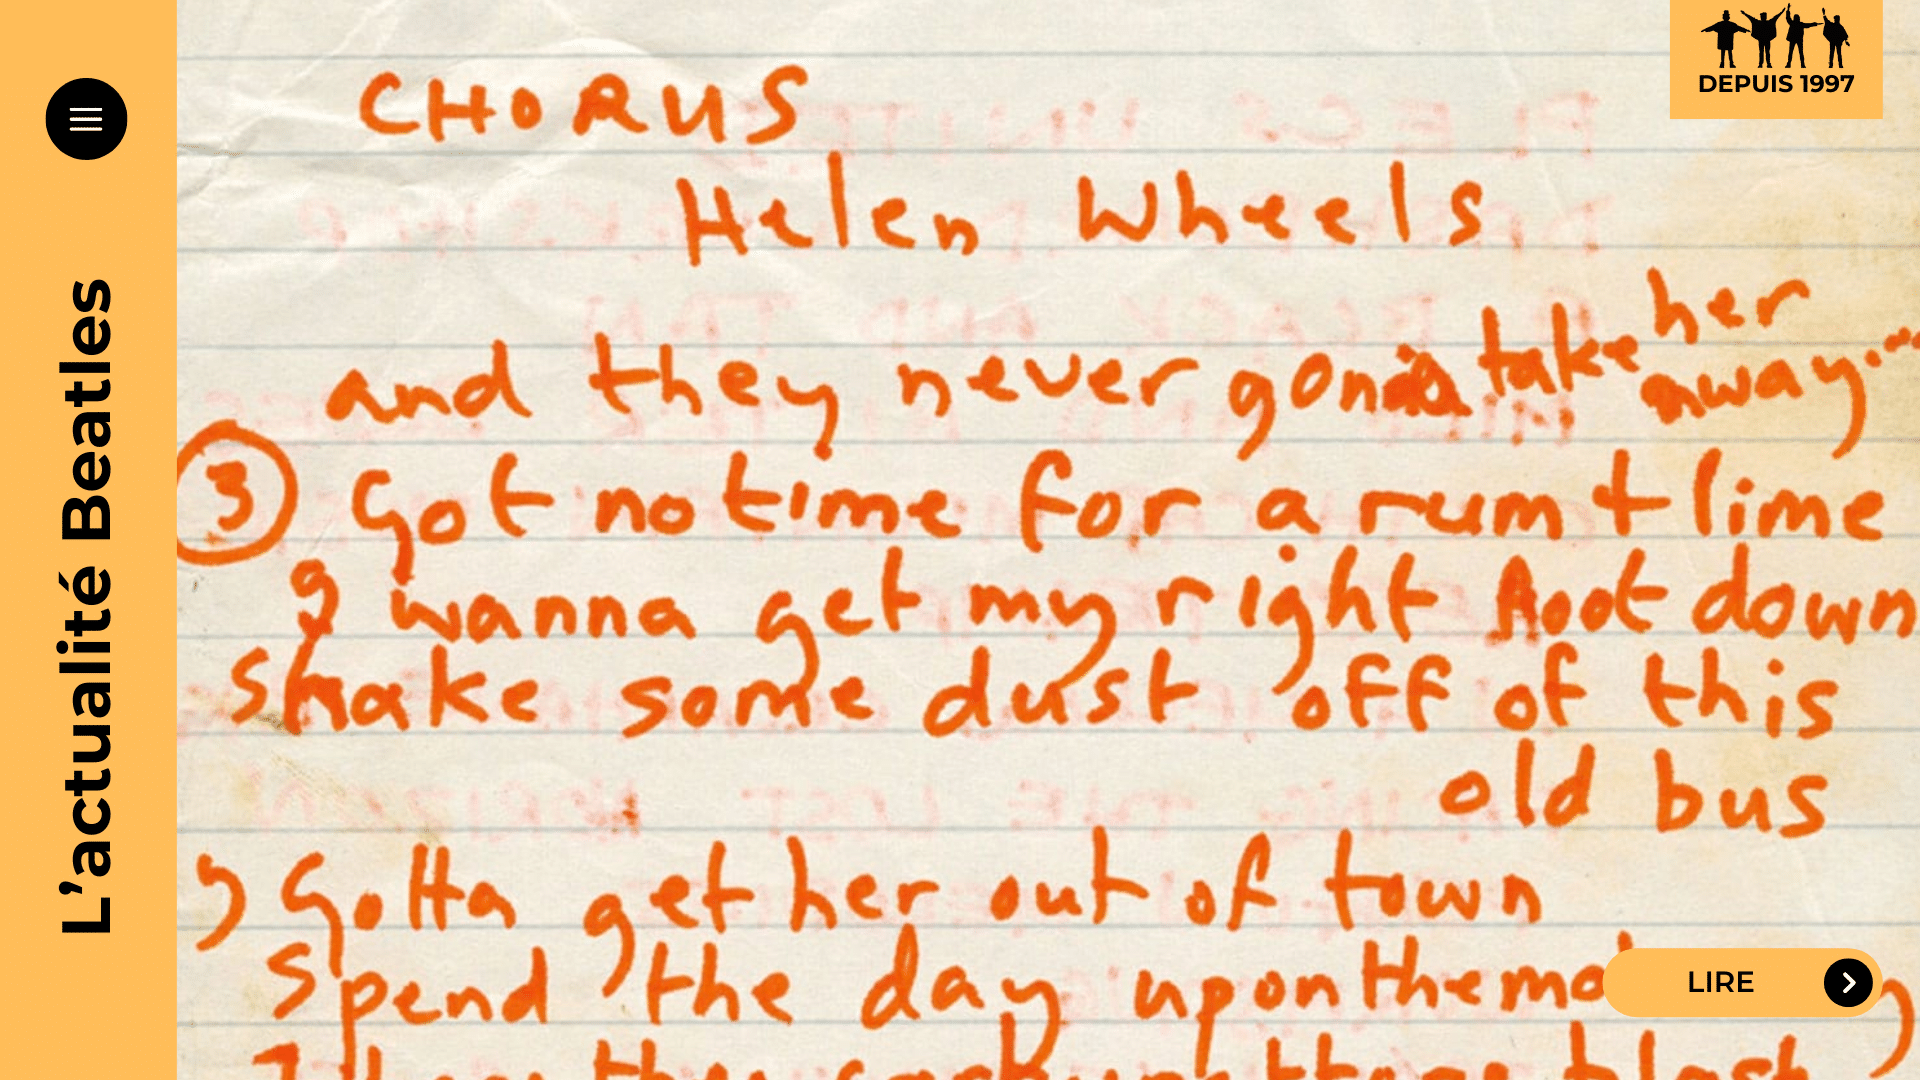 L'actualité Beatles
DEPUIS 1997
CHORUS
Helen Wheels
and they never gonna take her
away...
3 Got no time for a rum + lime
I wanna get my right foot down
shake some dust off of this
old bus
Gotta get her out of town
Spend the day upon the
LIRE